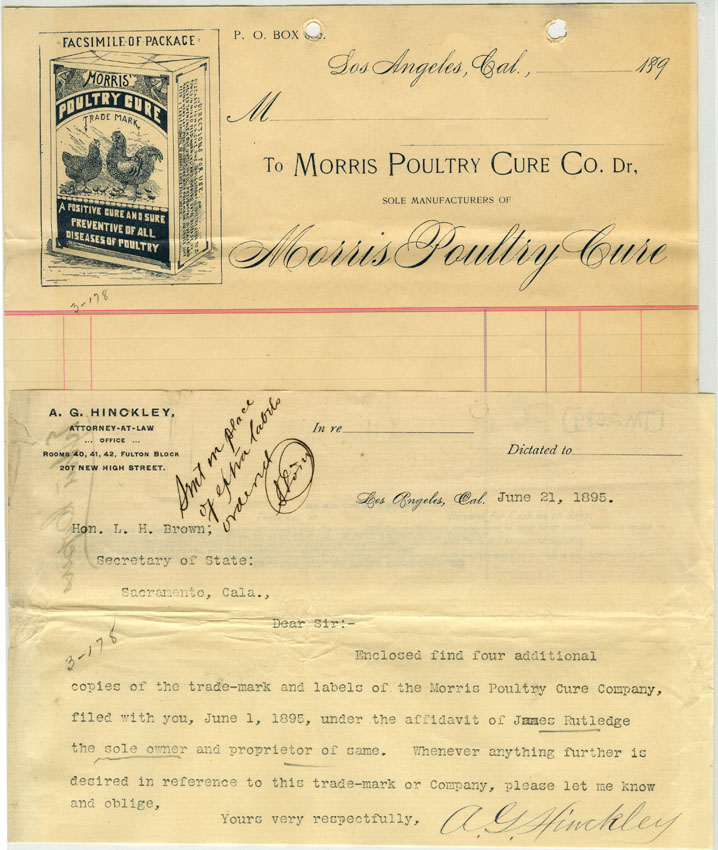 FACSIMILE OF PACKAGE
MORRIS'
POULTRY CURE
TRADE MARK
A POSITIVE CURE AND SURE
PREVENTIVE OF ALL
DISEASES OF POULTRY
DIRECTIONS FOR USE
P. O. BOX
Los Angeles, Cal., 189
M
To MORRIS POULTRY CURE CO. Dr.
SOLE MANUFACTURERS OF
Morris Poultry Cure
3-178
A. G. HINCKLEY,
ATTORNEY-AT-LAW
... OFFICE ...
ROOMS 40, 41, 42, FULTON BLOCK
207 NEW HIGH STREET.
Sent in place
of extra labels
ordered
In re
Dictated to
Los Angeles, Cal. June 21, 1895.
Hon. L. H. Brown;
Secretary of State:
Sacramento, Cala.,
Dear Sir:-
3-178
Enclosed find four additional
copies of the trade-mark and labels of the Morris Poultry Cure Company,
filed with you, June 1, 1895, under the affidavit of James Rutledge
the sole owner and proprietor of same. Whenever anything further is
desired in reference to this trade-mark or Company, please let me know
and oblige,
Yours very respectfully, A. G. Hinckley